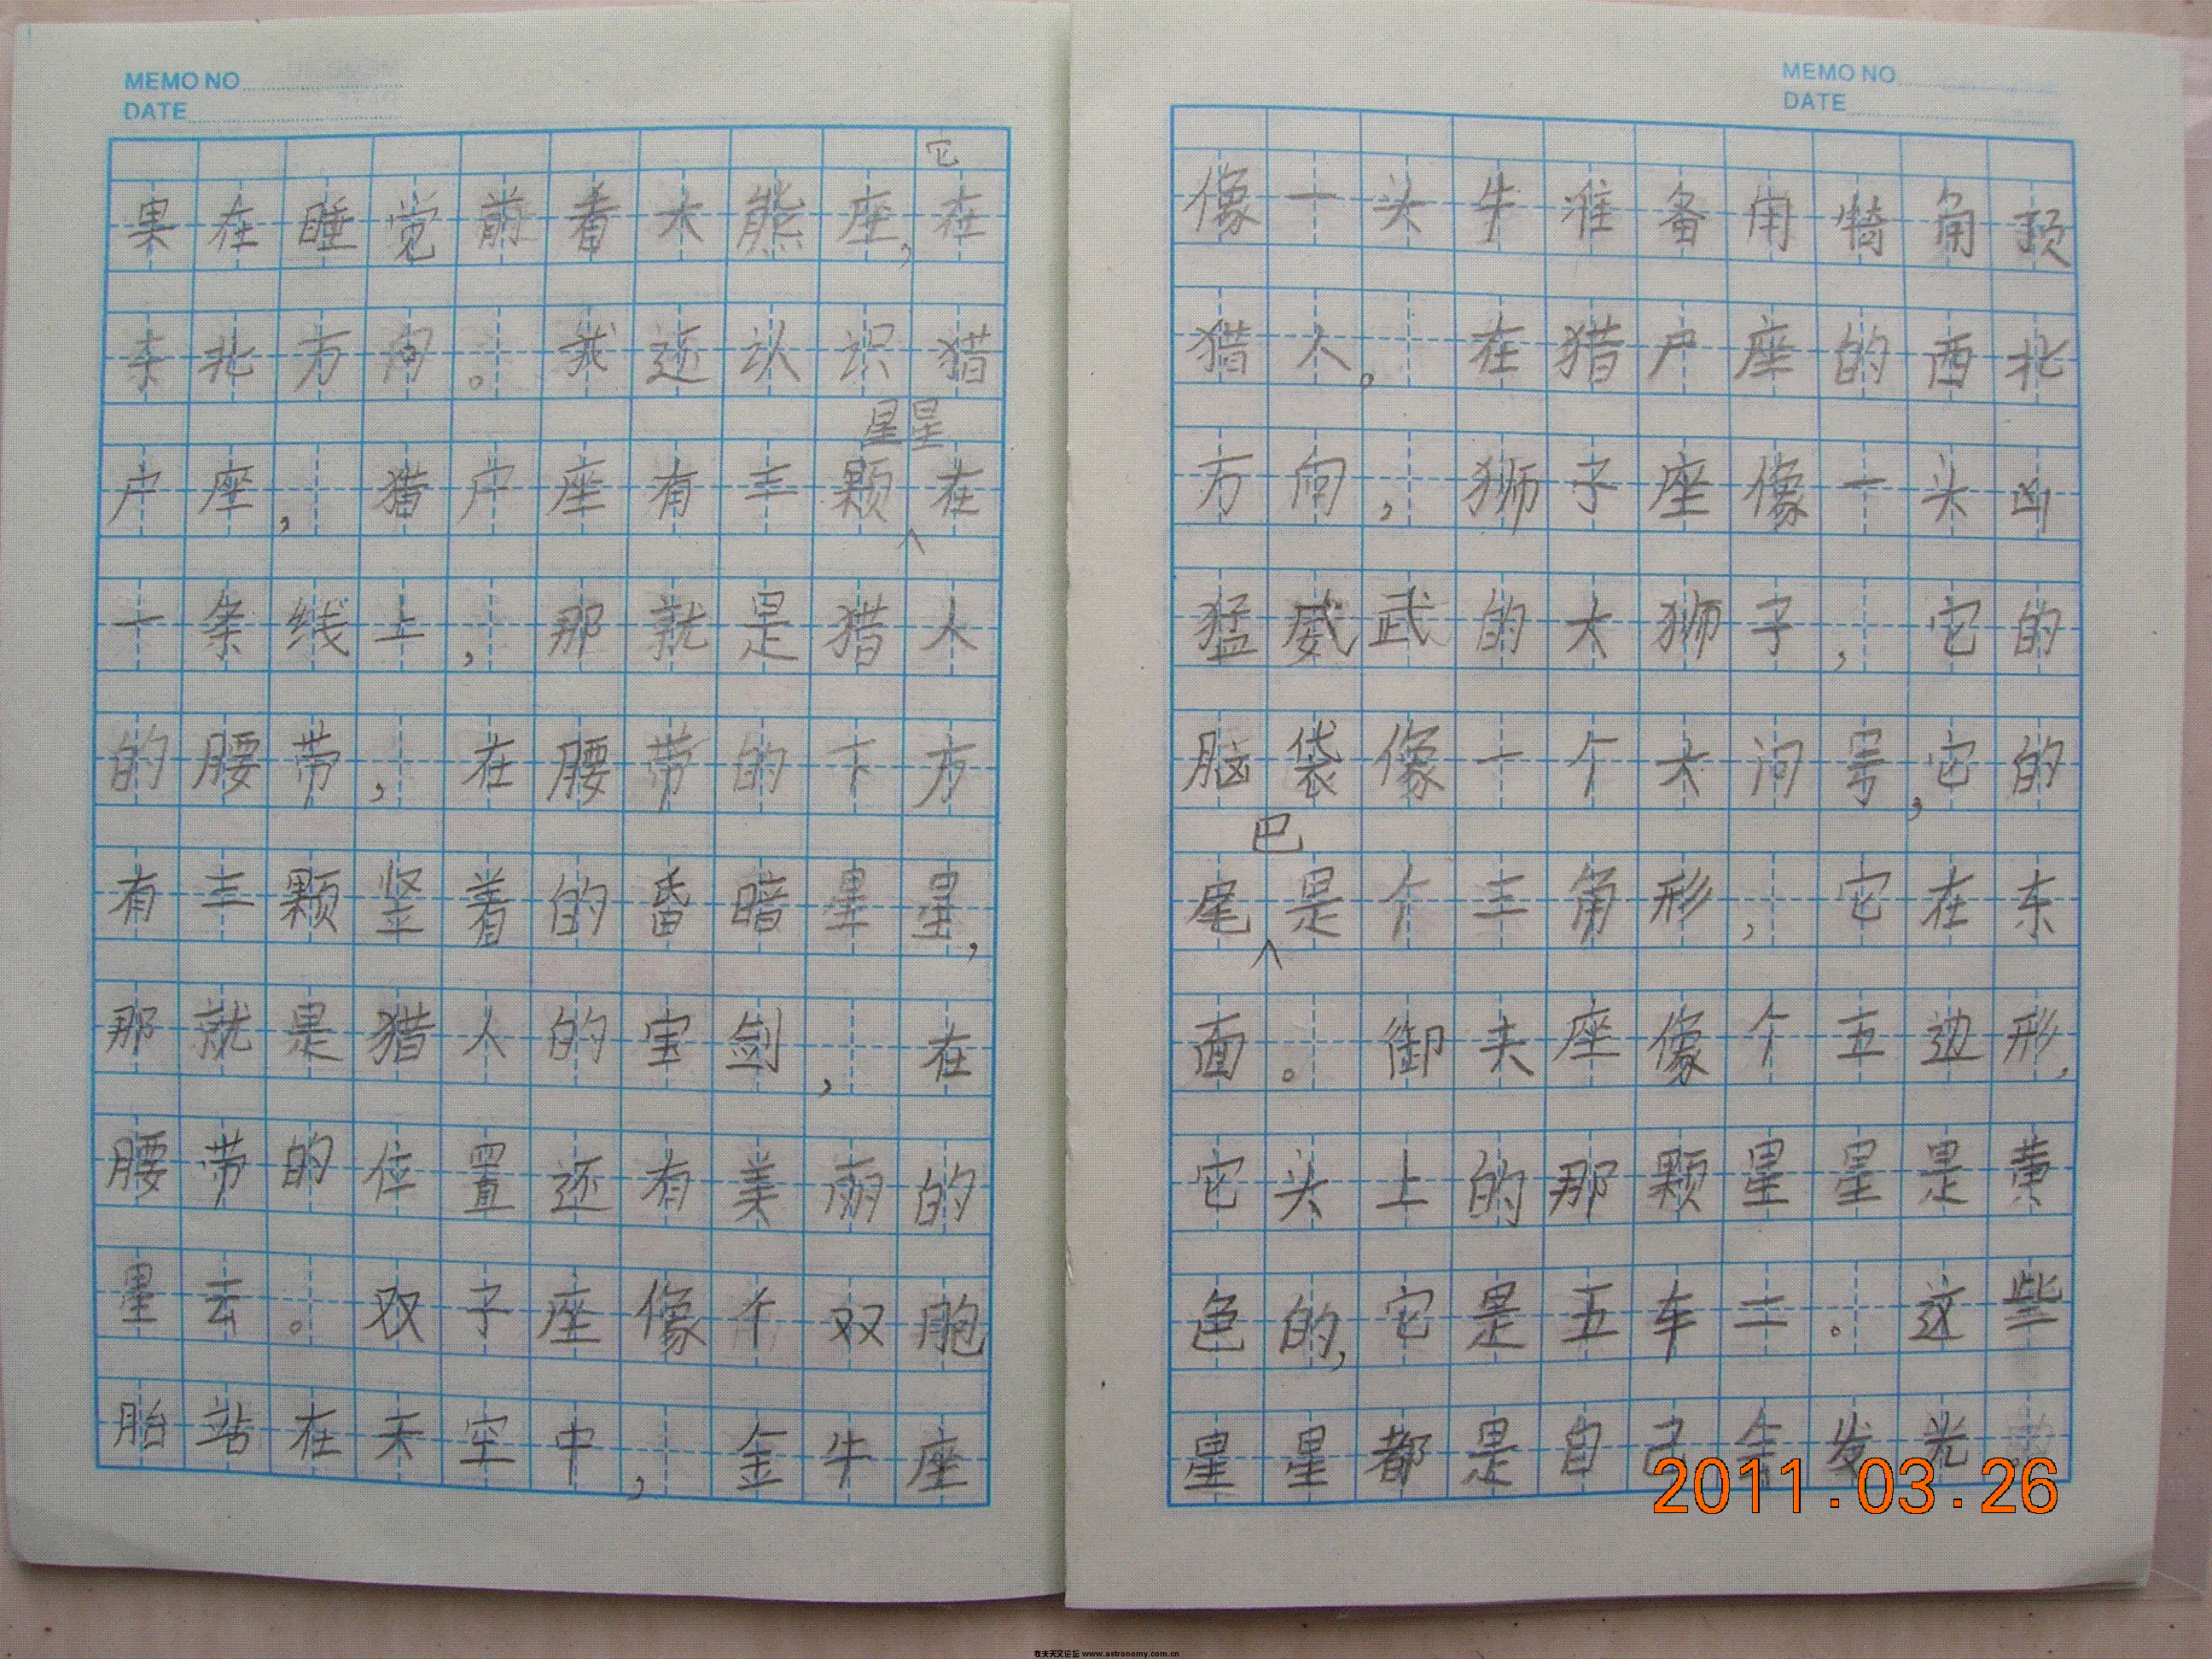 MEMO NO
DATE
它
果在睡觉前看大熊座,在
东北方向。我还认识猎
星星
户座,猎户座有三颗在
一条线上,那就是猎人
的腰带,在腰带的下方
有三颗竖着的昏暗星星,
那就是猎人的宝剑,在
腰带的位置还有美丽的
星云。双子座像个双胞
胎站在天空中,金牛座
MEMO NO
DATE
像一头牛准备用犄角顶
猎人。在猎户座的西北
方向,狮子座像一头凶
猛威武的大狮子,它的
脑袋像一个大问号,它的
巴
尾是个三角形,它在东
面。御夫座像个五边形,
它头上的那颗星星是黄
色的,它是五车二。这些
星星都是自己会发光
2011.03.26
牧夫天文论坛 www.astronomy.com.cn